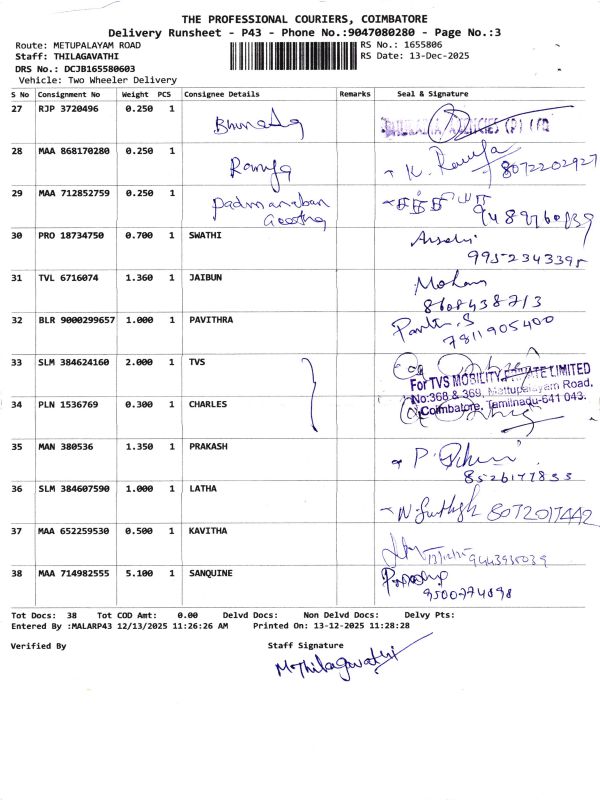 THE PROFESSIONAL COURIERS, COIMBATORE
Delivery Runsheet - P43 - Phone No.:9047080280 - Page No.:3
Route: METUPALAYAM ROAD RS No.: 1655806
Staff: THILAGAVATHI RS Date: 13-Dec-2025
DRS No.: DCJB165580603
Vehicle: Two Wheeler Delivery
S No Consignment No Weight PCS Consignee Details Remarks Seal & Signature
27 RJP 3720496 0.250 1
28 MAA 868170280 0.250 1 Ramya K. Ramya
8072202927
29 MAA 712852759 0.250 1 Padmanaban
30 PRO 18734750 0.700 1 SWATHI
9952343395
31 TVL 6716074 1.360 1 JAIBUN Mohan
8608438713
32 BLR 9000299657 1.000 1 PAVITHRA
7811905400
33 SLM 384624160 2.000 1 TVS
For TVS MOBILITY PRIVATE LIMITED
No:368 & 369, Mettupalayam Road,
34 PLN 1536769 0.300 1 CHARLES
Coimbatore, Tamilnadu-641 043.
35 MAN 380536 1.350 1 PRAKASH
8526177833
36 SLM 384607590 1.000 1 LATHA
8072017442
37 MAA 652259530 0.500 1 KAVITHA
9443935039
38 MAA 714982555 5.100 1 SANQUINE
Tot Docs: 38 Tot COD Amt: 0.00 Delvd Docs: Non Delvd Docs: Delvy Pts:
Entered By :MALARP43 12/13/2025 11:26:26 AM Printed On: 13-12-2025 11:28:28
Verified By Staff Signature
M.Thilagavathi